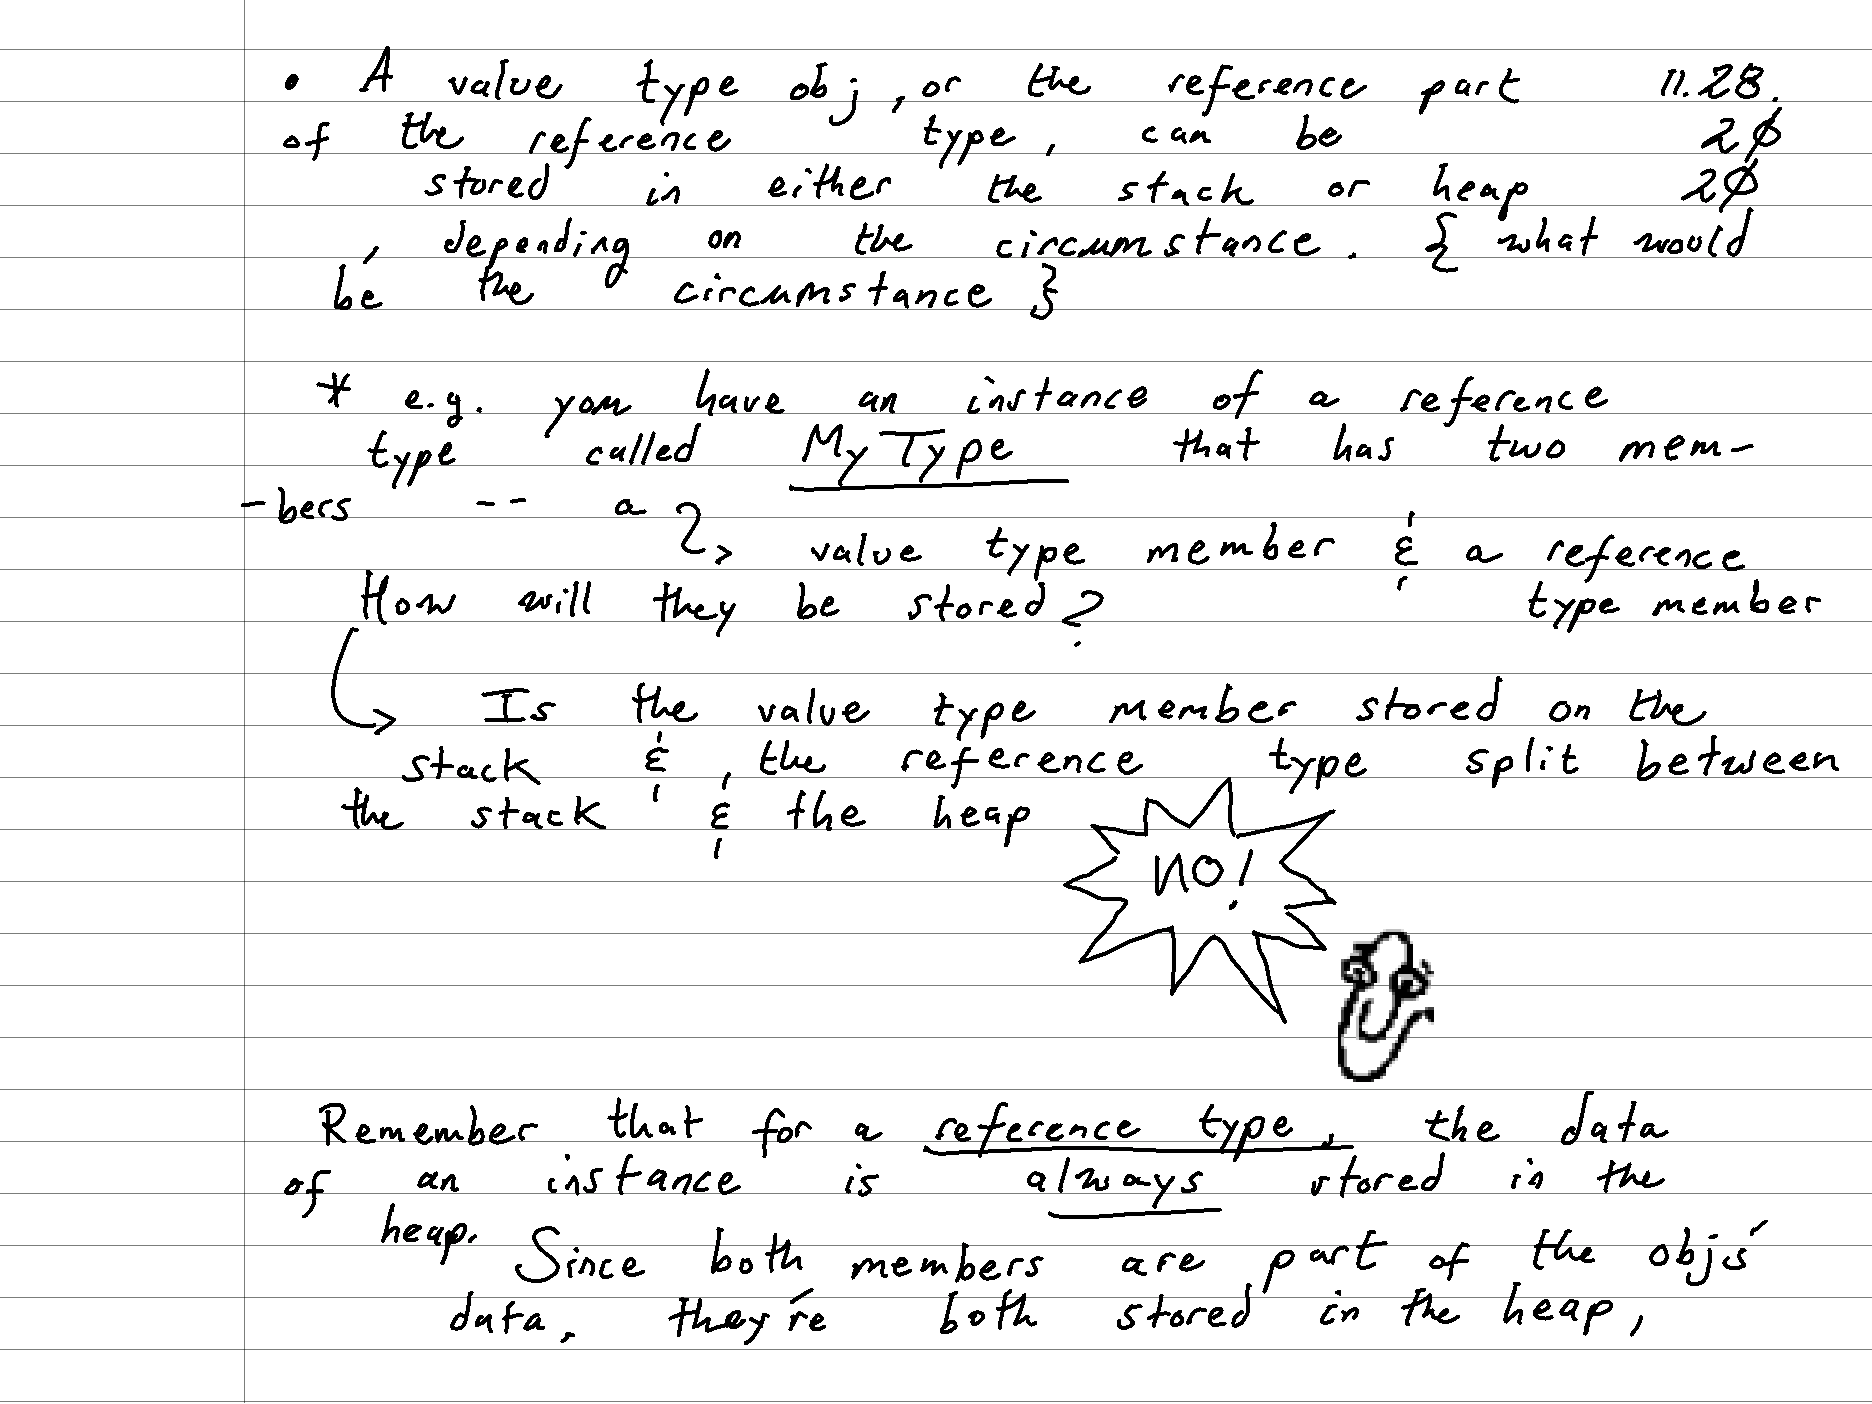 • A value type obj, or the reference part 11.28.
of the reference type, can be 2Ø
stored in either the stack or heap 2Ø
, depending on the circumstance. { what would
be the circumstance }
* e.g. you have an instance of a reference
type called MyType that has two mem-
-bers -- a
value type member & a reference
How will they be stored? type member
Is the value type member stored on the
stack & , the reference type split between
the stack & the heap
NO!
Remember that for a reference type, the data
of an instance is always stored in the
heap.
Since both members are part of the obj's
data, they're both stored in the heap,